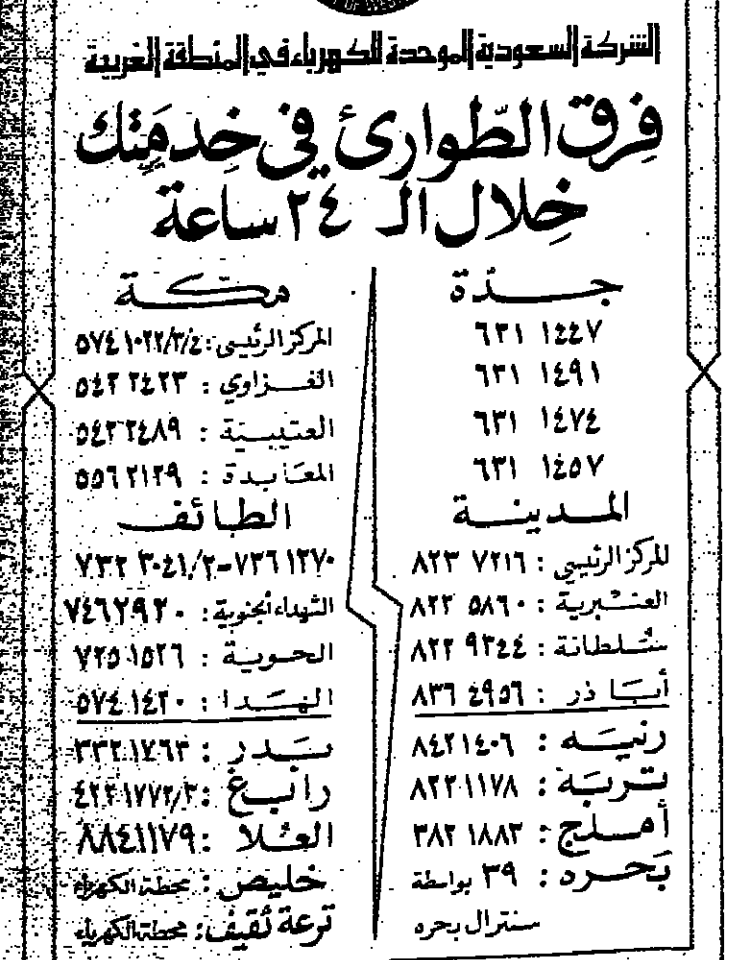 الشركة السعودية الموحدة للكهرباء في المنطقة الغربية
فِرق الطّوارئ في خِدمَتِك
خِلال الـ ٢٤ ساعة
جـدّة
٦٣١ ١٤٤٧
٦٣١ ١٤٩١
٦٣١ ١٤٧٤
٦٣١ ١٤٥٧
المدينة
المركز الرئيسي : ٨٢٣ ٧٢١٦
العنبرية : ٨٢٣ ٥٨٦٠
سُلطانة : ٨٢٢ ٩٣٤٤
أبا ذر : ٨٣٦ ٤٩٥٦
رنيه : ٨٤٢١٤٠٦
تربة : ٨٢٢١١٧٨
أملج : ٣٨٢ ١٨٨٣
بَحره : ٣٩ بواسطة
سنترال بحره
مكّة
المركز الرئيسي : ٥٧٤١٠٢٢/٣/٤
الغزاوي : ٥٤٢٢٤٢٣
العتيبية : ٥٤٢٢٤٨٩
المعابدة : ٥٥٦٢١٢٩
الطائف
٧٣٢ ٣٠٤١/٢-٧٣٦١٢٧٠
الشهداء الجنوبية : ٧٤٦٢٩٢٠
الحوية : ٧٢٥١٥٢٦
الهدا : ٥٧٤١٤٢٠
بدر : ٣٣٢١٧٦٣
رابغ : ٤٢٢١٧٧٢/٣
العلا : ٨٨٤١١٧٩
خليص : محطة الكهرباء
ترعة ثقيف : محطة الكهرباء